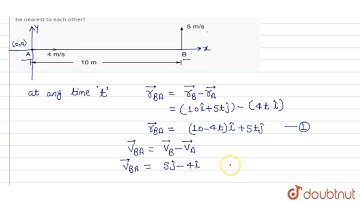 be nearest to each other?
Y
5 m/s
(0,0)
A 4 m/s B x
10 m
at any time 't' r⃗_BA = r⃗_B - r⃗_A
= (10î+5tĵ) - (4t î)
r⃗_BA = (10-4t)î + 5tĵ —①
V⃗_BA = V⃗_B - V⃗_A
V⃗_BA = 5ĵ - 4î
doubtnut